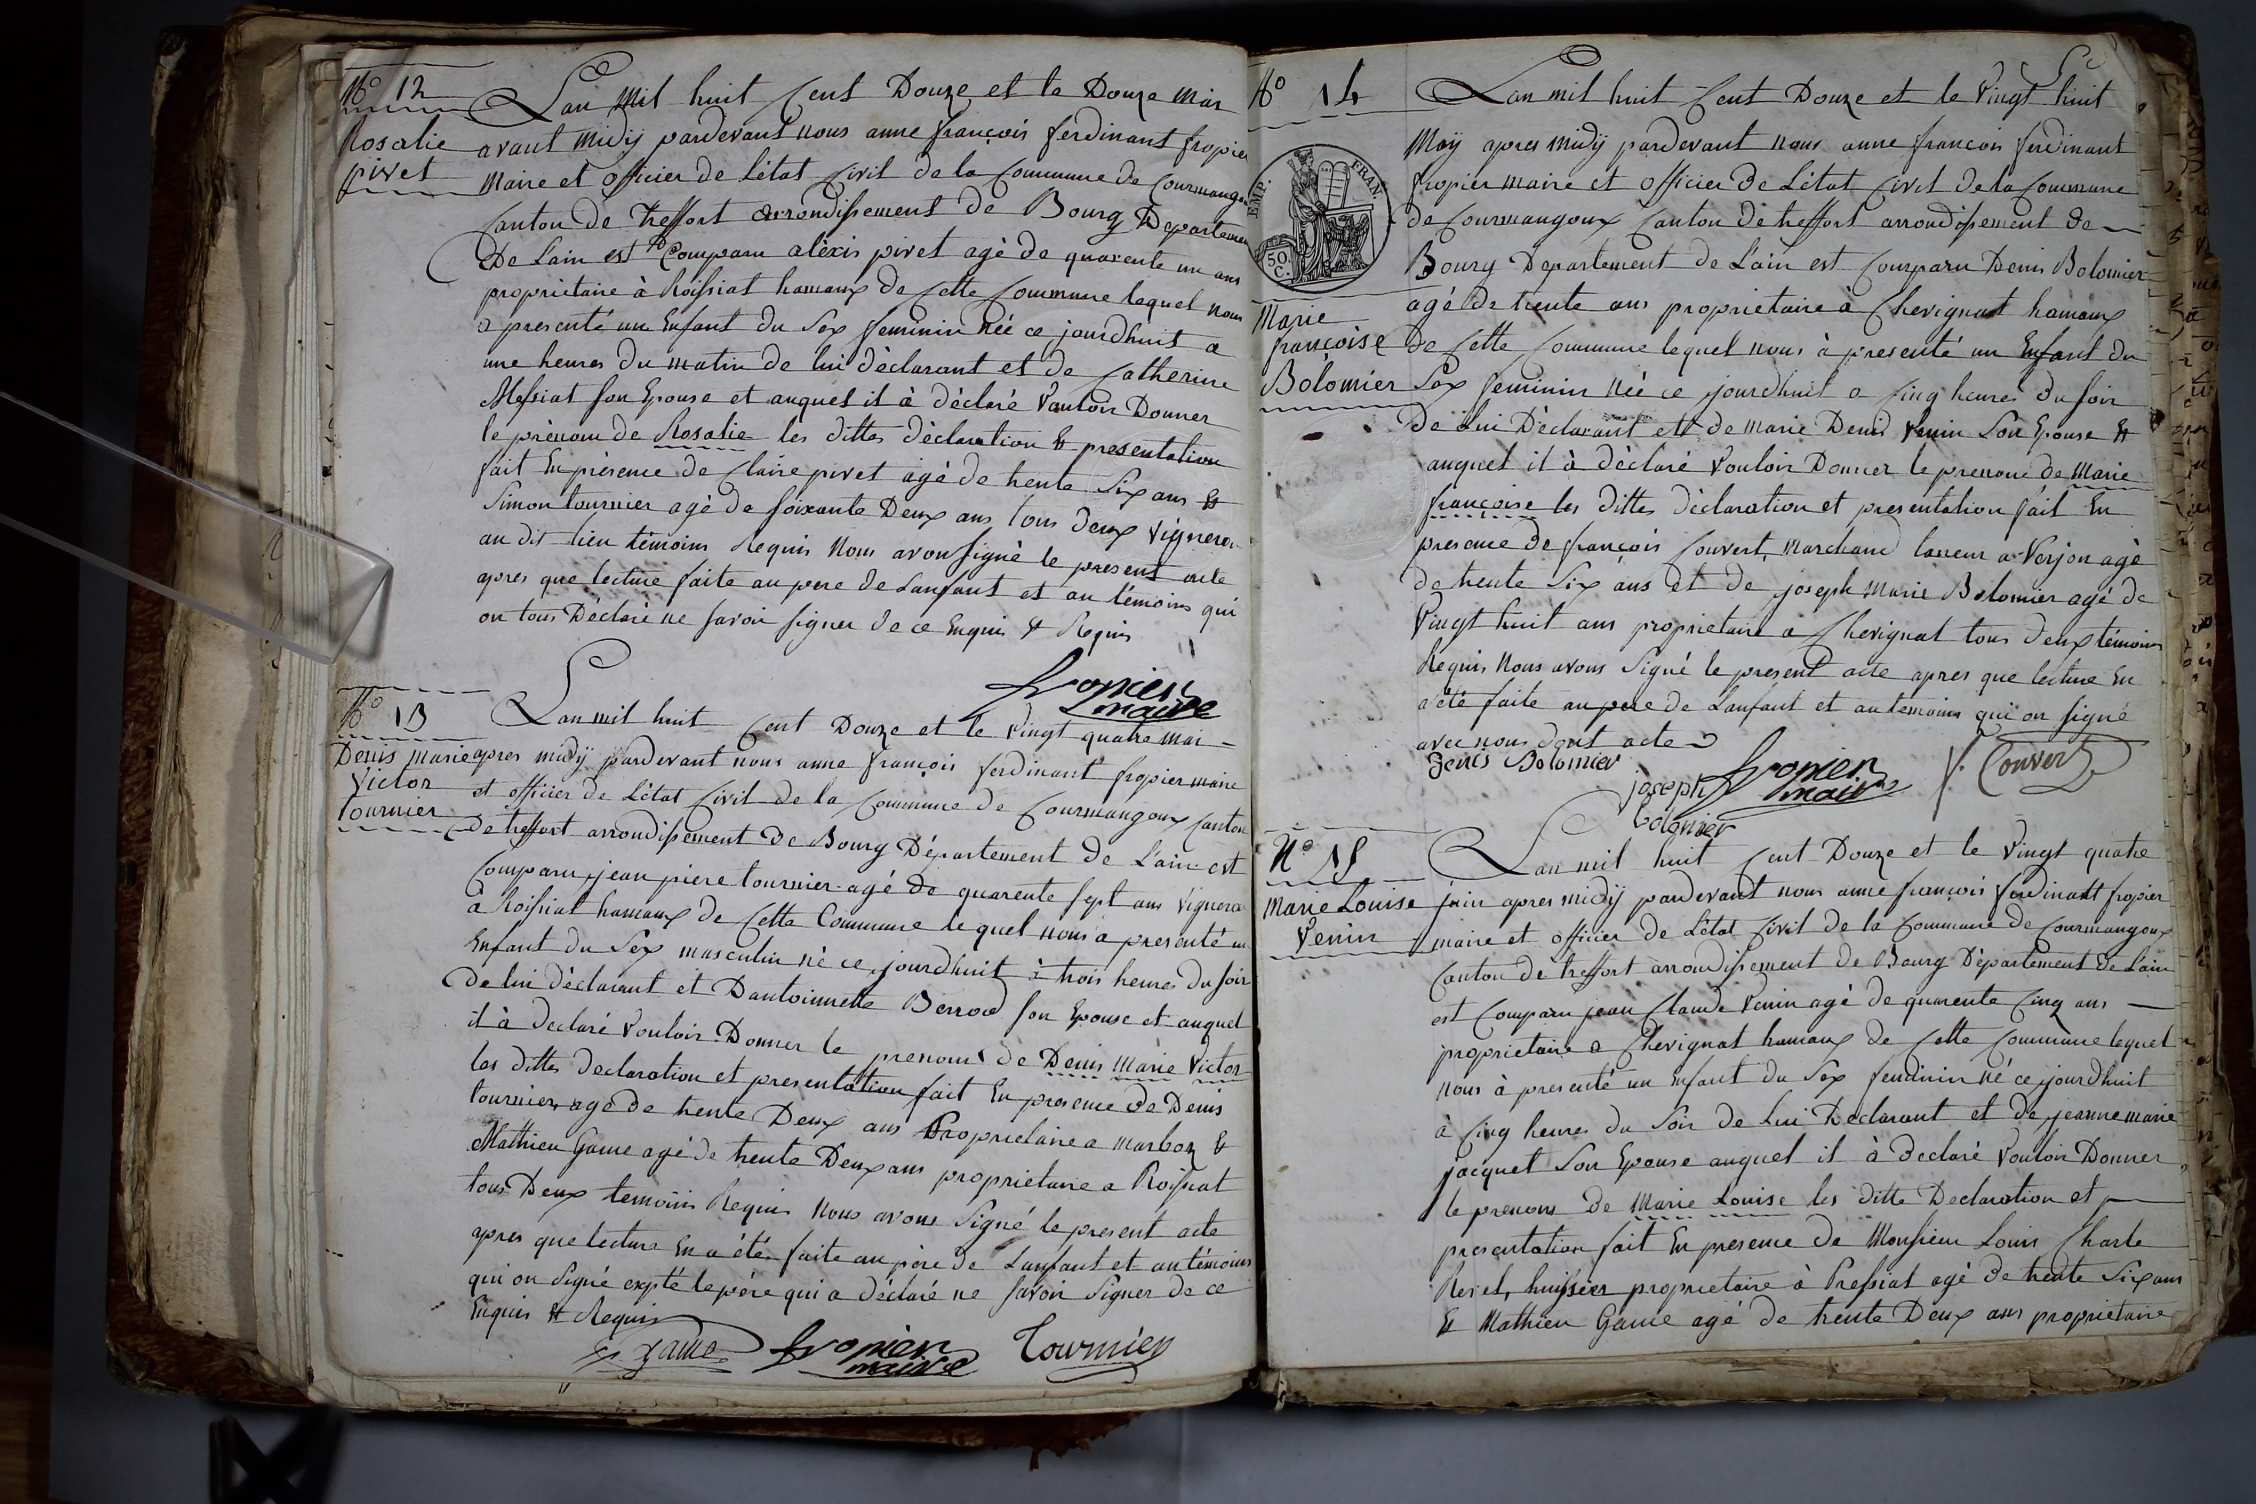 N.o 12
Rosalie
pivet
Lan mil huit Cent Douze et le Douze mai
avant midÿ pardevant nous anne françois ferdinant fropier
Maire et officier de Létat Civil de la Commune de Courmangoux
Canton de treffort arrondissement de Bourg Departement
De Lain est Comparu aléxis pivet agé de quarente un ans
proprietaire à Roissiat hamaux de Cette Commune lequel nous
a presenté un Enfant du Sex feminin née ce jourdhuit a
une heures du matin de lui déclarant et de Catherine
Messiat son Epouse et auquel il à déclaré Vouloir Donner
le prénom de Rosalie les dittes déclaration Et presentation
fait En présence de Claire pivet agé de trente Six ans Et
Simon tournier agé de soixante Deux ans tous deux Vigneron
au dit lieu témoins Requis Nous avon signé le present acte
apres que lecture faite au pere de Lanfant et au témoins qui
on tous Déclaré ne savoir signer de ce Enquis & Requis
fropier
maire
N.o 13
Denis Marie
Victor
tournier
Lan mil huit Cent Douze et le Vingt quatre mai
apres midÿ pardevant nous anne françois ferdinant fropier maire
et officier de Létat Civil de la Commune de Courmangoux Canton
de treffort arrondissement de Bourg Département de Lain est
Comparu jean piere tournier agé de quarente sept ans Vigneron
à Roissiat hamaux de Cette Commune le quel nous a presenté un
Enfant du Sex masculin né ce jourdhuit à trois heures du soir
de lui déclarant et Dantoinnette Berrod son Epouse et auquel
il à declaré Vouloir Donner le prenoms de Denis Marie Victor
les dittes declaration et presentation fait En presence de Denis
tournier agé de trente Deux ans Proprietaire a marboz &
Mathieu Game agé de trente Deux ans proprietaire a Roissiat
tous Deux temoins Requis Nous avons Signé le present acte
apres que lecture En a été faite au père de Lanfant et au témoins
qui on Signé expté le père qui a déclaré ne savoir Signer de ce
Enquis Et Requis
Game fropier Tournier
maire
N.o 14
EMP. FRAN.
50 C.
Marie
françoise
Bolomier
Lan mil huit Cent Douze et le Vingt huit
Maÿ apres midÿ pardevant nous anne francois ferdinant
fropier maire et officier de Létat Civil de la Commune
de Courmangoux Canton de treffort arrondissement de
Bourg Departement de Lain est Comparu Denis Bolomier
agé de trente ans proprietaire à Chevignat hamaux
de Cette Commune lequel nous à presenté un Enfant du
Sex feminin née ce jourdhuit a Cinq heures du soir
de Lui Déclarant et de marie Denis Venin Son Epouse Et
auquel il à déclaré Vouloir Donner le prenom de Marie
françoise les dittes déclaration et presentation fait En
presence de françois Couvert Marchand tanneur a Verjon agé
de trente Six ans et de joseph Marie Bolomier agé de
Vingt huit ans proprietaire a Chevignat tous deux témoins
Requis Nous avons Signé le present acte apres que lecture En
a été faite au pere de Lanfant et au temoins qui on signé
avec nous dont acte
Denis Bolomier
joseph fropier f. Convert
maire
bolomier
N.o 15
Marie Louise
Venin
Lan mil huit Cent Douze et le Vingt quatre
juin apres midÿ pardevant nous anne francois ferdinant fropier
maire et officier de Létat Civil de la Commune de Courmangoux
Canton de treffort arrondissement de Bourg Département de Lain
est Comparu jean Claude Venin agé de quarente Cinq ans
proprietaire a Chevignat hamaux de Cette Commune lequel
nous à presenté un Enfant du Sex feminin né ce jourdhuit
à Cinq heures du Soir de Lui Declarant et de jeanne marie
jacquet Son Epouse auquel il à declaré Vouloir Donner
le prenoms de Marie Louise les ditte Declaration et
presentation fait En presence de Monsieur Louis Charle
Revel, huissier proprietaire à Pressiat agé de trente Six ans
Et Mathieu Game agé de trente Deux ans proprietaire